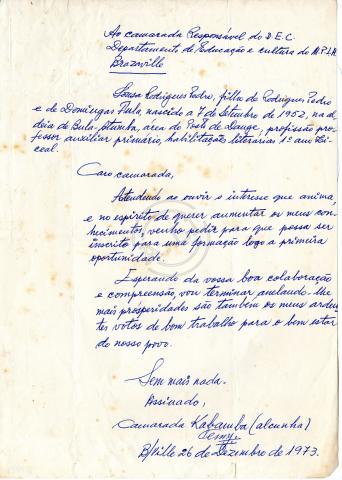 Ao camarada Responsável do D.E.C.
Departamento de Educação e cultura do M.P.L.A.
Brazaville
Sousa Rodrigues Pedro, filho de Rodrigues Pedro
e de Domingas Paula, nascido a 7 de Setembro de 1952, na al-
deia de Bula-Atumba, área do Posto de Dange, profissão pro-
fessor auxiliar primário, habilitações literárias 1º ano Li-
ceal.
Caro camarada,
Atendendo ao ouvir o interesse que anima,
e no espírito de querer aumentar os meus con-
hecimentos, venho pedir para que possa ser
inscrito para uma formação logo a primeira
oportunidade.
Esperando da vossa boa colaboração
e compreensão, vou terminar anelando-lhe
mais prósperidades são também os meus arden-
tes votos de bom trabalho para o bem estar
do nosso povo.
Sem mais nada.
Assinado,
Camarada Kabamba (alcunha)
B/ville 26 de Dezembro de 1973.